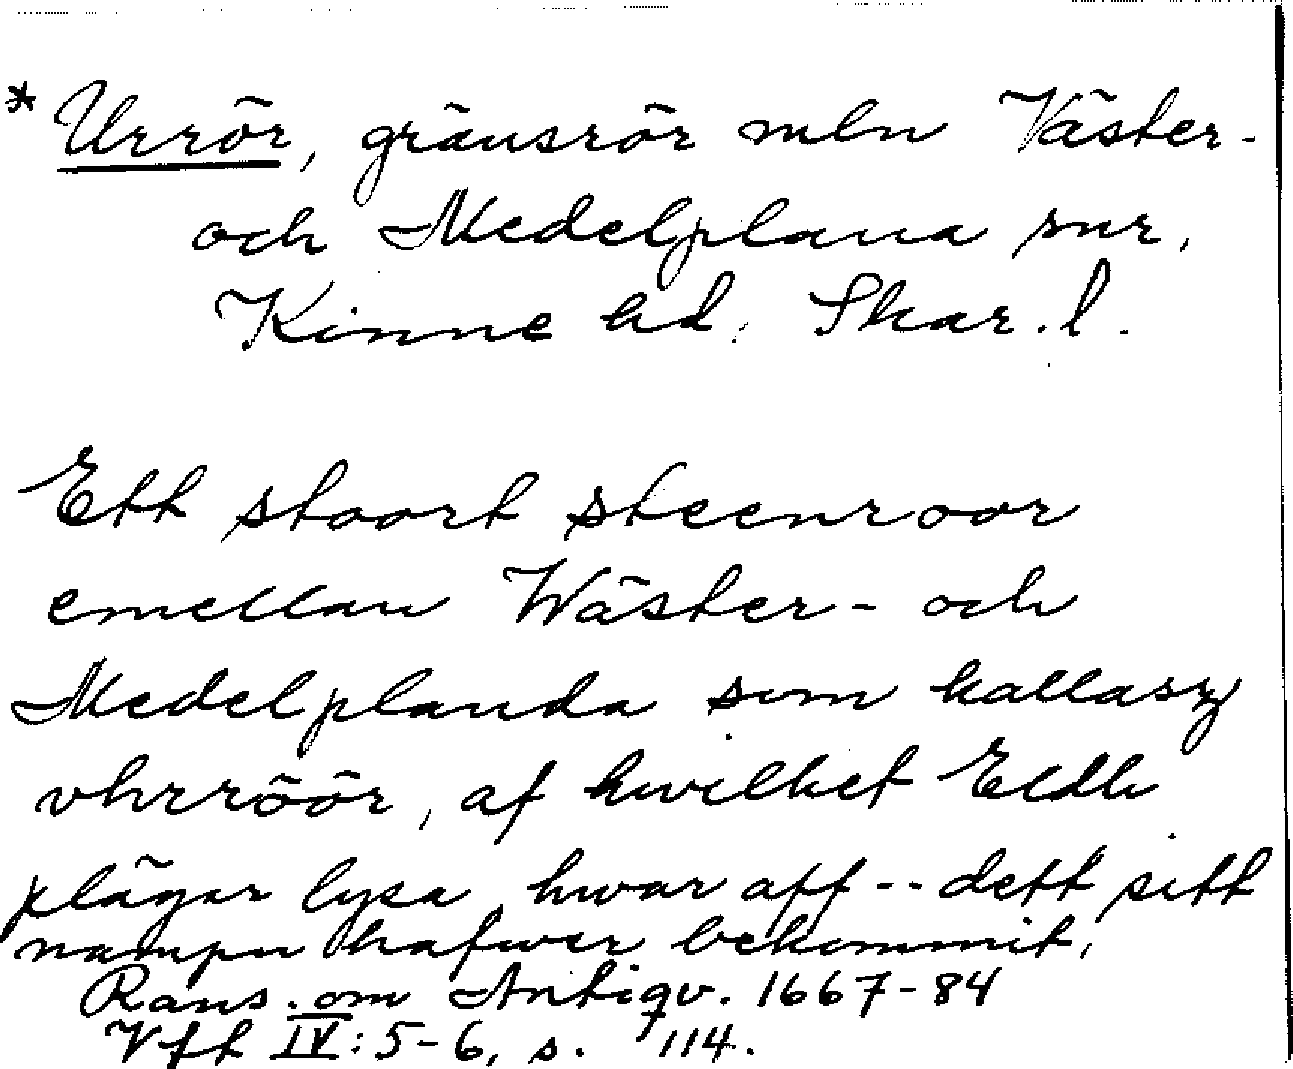 * Urrör, gränsrör mln Väster-
och Medelplana snr,
Kinne hd. Skar. l.
Ett stoort steenroor
emellan Wäster- och
Medelplanda som kallasz
vhrröör, af hwilket Eldh
plägar lysa, hwar aff -- dett sitt
nampn hafwer bekommit,
Rans. om Antiqv. 1667-84
Vft IV: 5-6, s. 114.